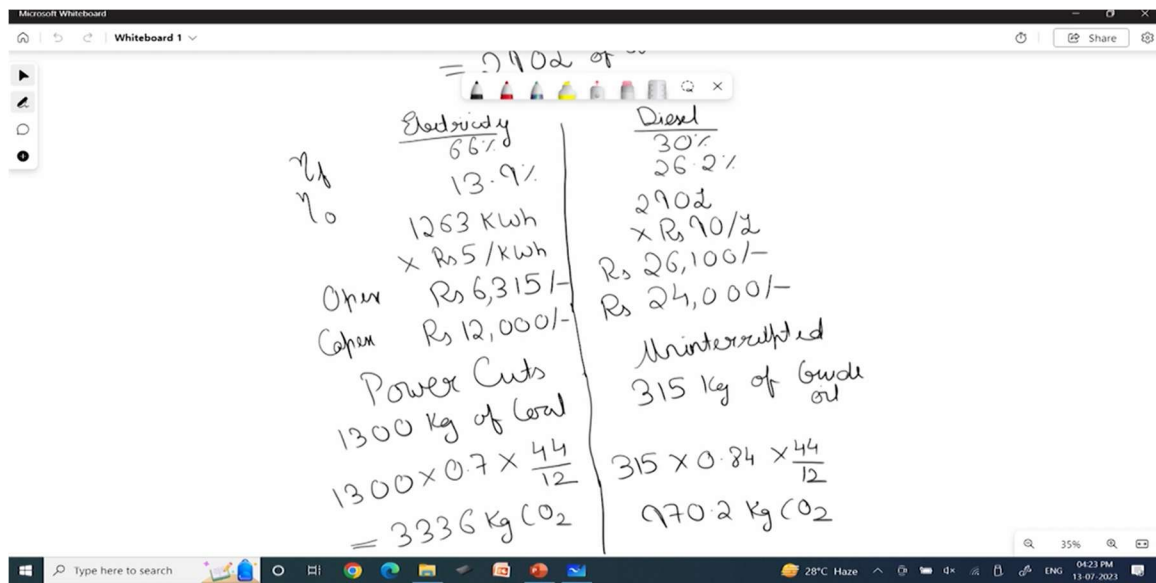 Microsoft Whiteboard
Whiteboard 1
Share
= 290L of
Electricity Diesel
ηf 66% 30%
ηo 13.9% 26.2%
1263 KWh 290L
× Rs 5/KWh × Rs 90/L
Opex Rs 6,315/- Rs 26,100/-
Capex Rs 12,000/- Rs 24,000/-
Power Cuts Uninterrupted
1300 Kg of Coal 315 Kg of Crude oil
1300 × 0.7 × 44/12 315 × 0.84 × 44/12
= 3336 Kg CO2 970.2 Kg CO2
35%
Type here to search
28°C Haze
ENG
04:23 PM
13-07-2023